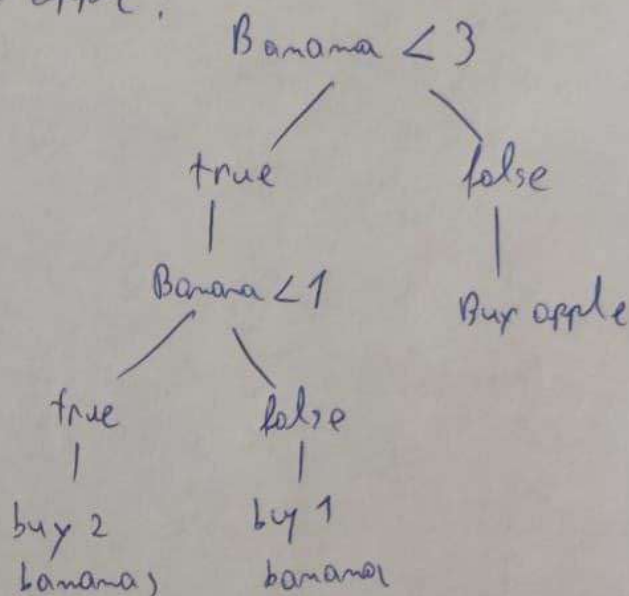 apple.
Banana < 3
true false
Banana < 1 Buy apple
true false
buy 2 buy 1
bananas banana